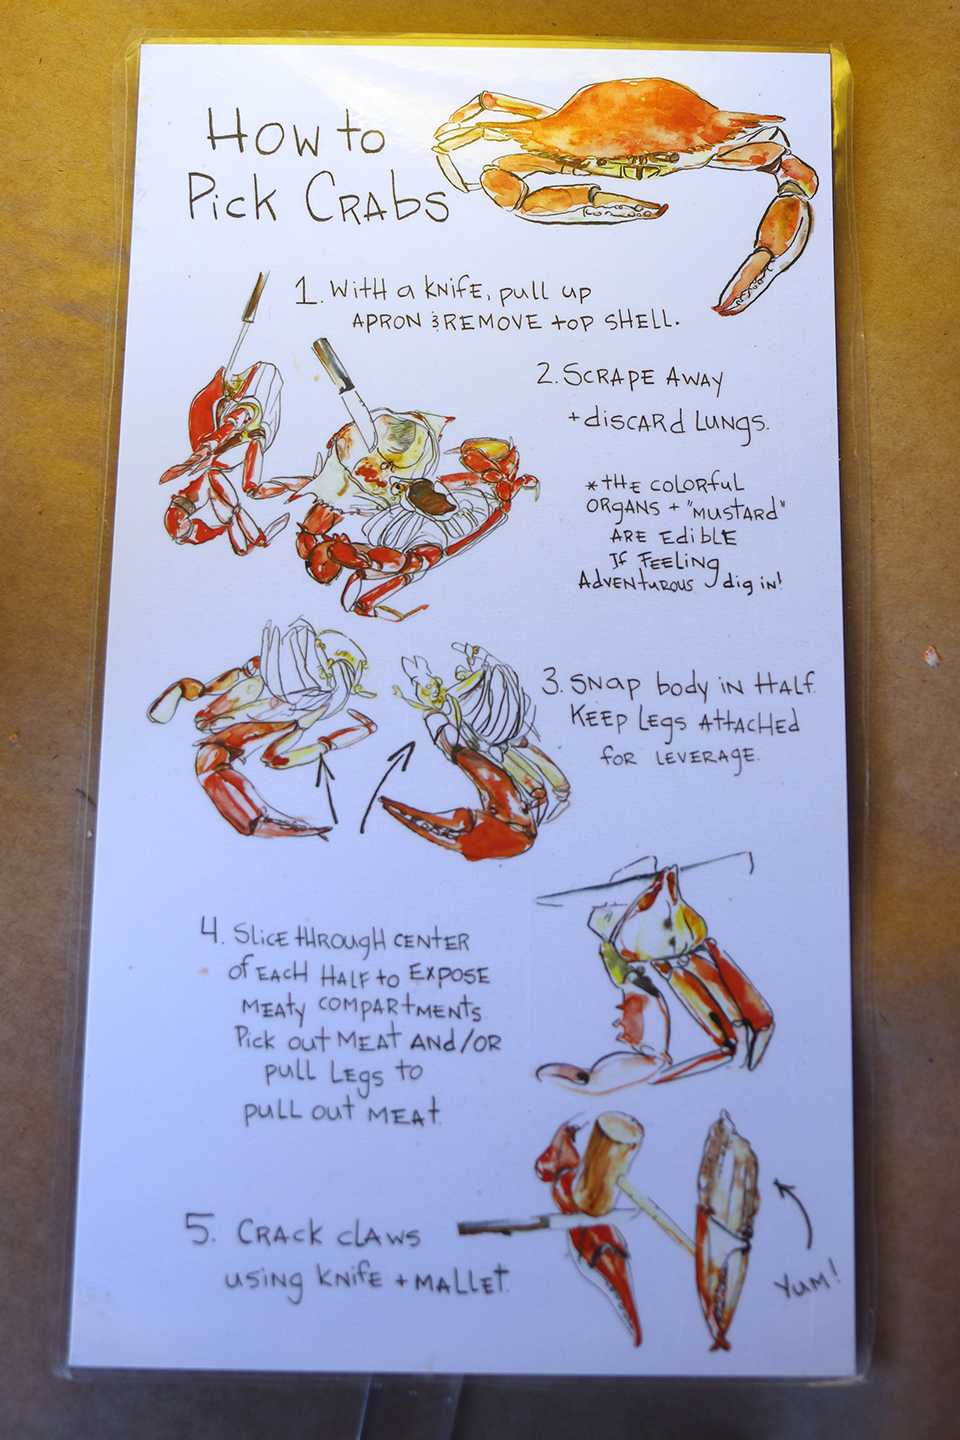 How to
Pick Crabs
1. With a knife, pull up
apron & remove top shell.
2. Scrape away
+ discard lungs.
* the colorful
organs + "mustard"
are edible
If feeling
adventurous dig in!
3. Snap body in half.
Keep legs attached
for leverage.
4. Slice through center
of each half to expose
meaty compartments
Pick out meat and/or
pull legs to
pull out meat.
5. Crack claws
using knife + mallet.
Yum!